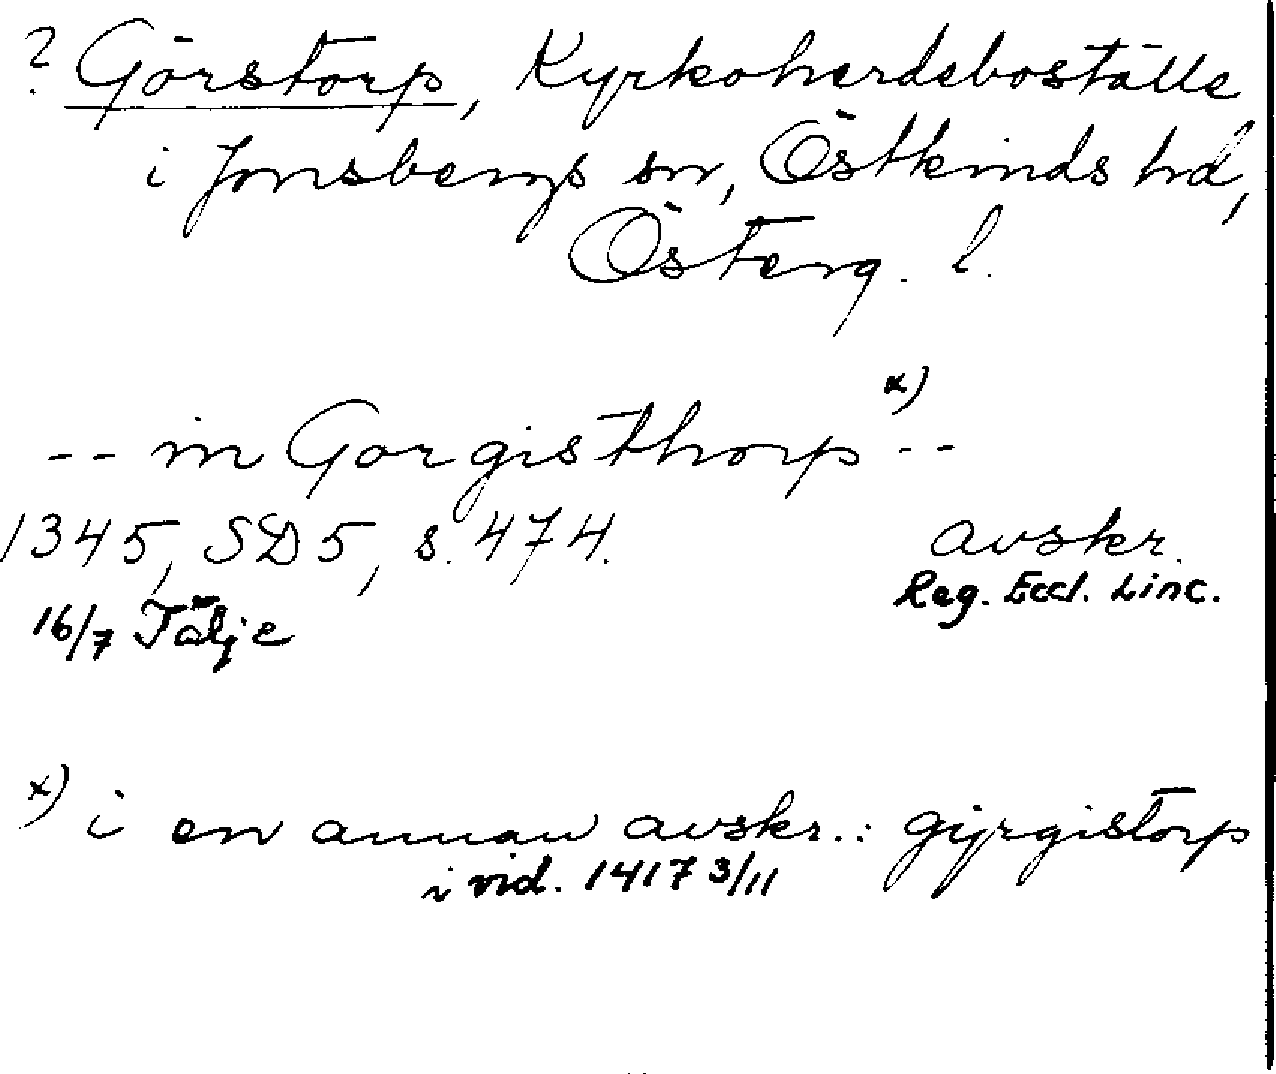 ? Görstorp, Kyrkoherdeboställe
i Jonsbergs sn, Östkinds hd,
Österg. l.
-- in Gorgisthorp x) --
1345, SD 5, s. 474. avskr.
16/7 Tälje Reg. Eccl. Linc.
x) i en annan avskr.: gyrgistorp
i vid. 1417 3/11